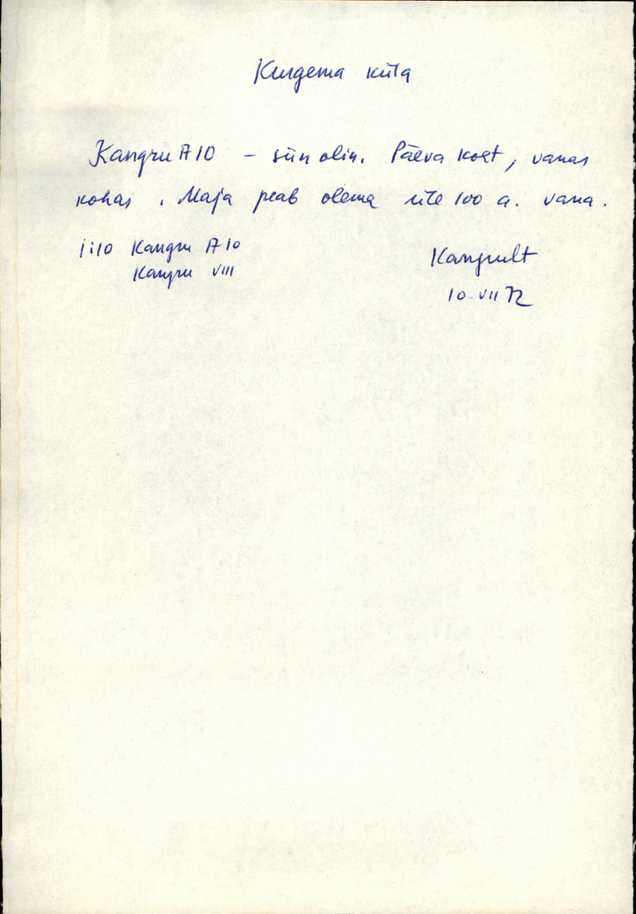 Kurgema küla
Kangru A10 – siin olin. Päeva koet, vanas
kohas. Maja peab olema üle 100 a. vana.
1:10 Kangru A10
Kangru VIII
Kangrult
10. VII 72